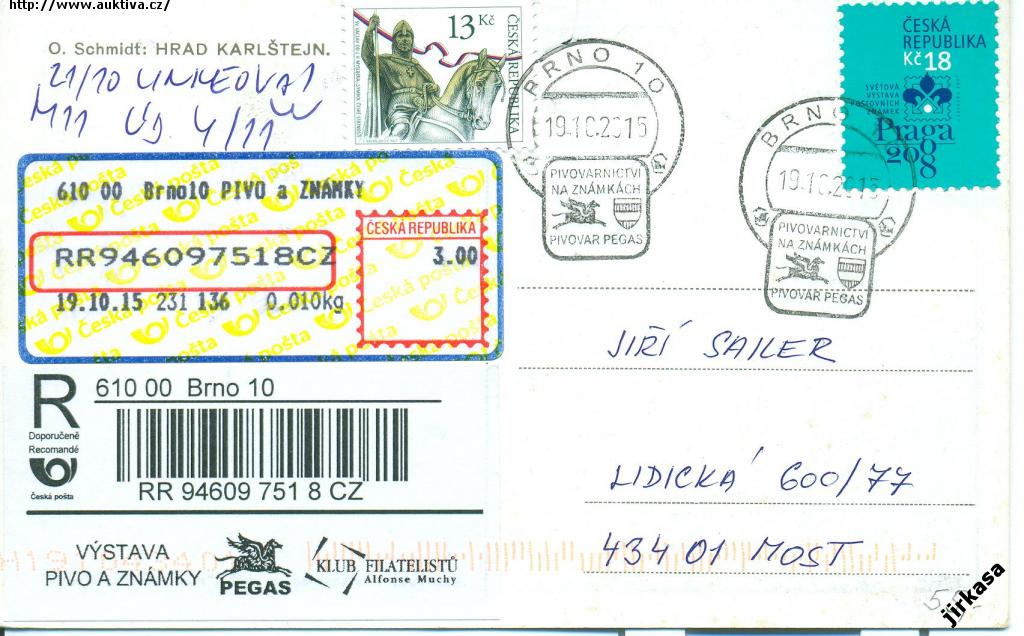 http://www.auktiva.cz/
O. Schmidt: HRAD KARLŠTEJN.
21/10
4/11
13 Kč
ČESKÁ REPUBLIKA
BRNO 10
19.10.2015
PIVOVARNICTVÍ
NA ZNÁMKÁCH
PIVOVAR PEGAS
BRNO
19.10.2015
PIVOVARNICTVÍ
NA ZNÁMKÁCH
PIVOVAR PEGAS
ČESKÁ
REPUBLIKA
Kč 18
SVĚTOVÁ
VÝSTAVA
POŠTOVNÍCH
ZNÁMEK
Praga
2008
610 00 Brno10 PIVO a ZNÁMKY
RR946097518CZ
19.10.15 231 136 0.010kg
ČESKÁ REPUBLIKA
3.00
Česká pošta
R
Doporučeně
Recomandé
Česká pošta
610 00 Brno 10
RR 94609 751 8 CZ
VÝSTAVA
PIVO A ZNÁMKY
PEGAS
KLUB FILATELISTŮ
Alfonse Muchy
JIŘÍ SAILER
LIDICKÁ 600/77
434 01 MOST
jirkasa